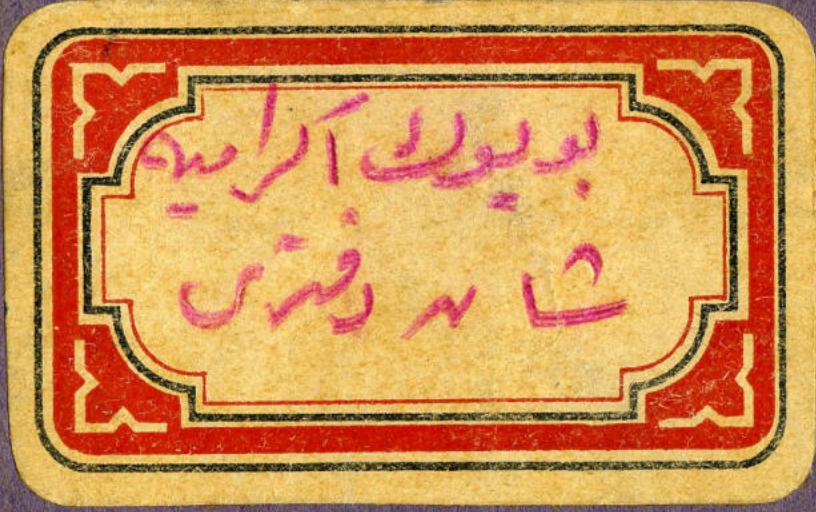 بويوك اكراميه
شانه دفترى